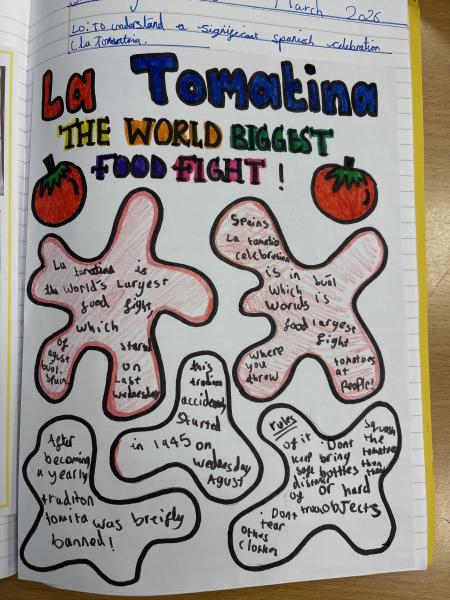 March 2026
LO: TO understand a significant spanish celebration
(La Tomatina.
La Tomatina
THE WORLD BIGGEST
FOOD FIGHT !
La tomatina is
the world's Largest
food fight
which
starts
on
Last
wednesday
of
agust
buol.
Spain
Spains
La tomatio
celebration
is in buol
Which is
worlds
food largest
fight
where
you
throw
tomatoes
at
People!
this
tradition
accidently
Started
in 1945 on
wednesday
Agust
After
becoming
a yearly
traditon
tomita was breifly
banned!
rules
of it
Keep
safe
distance
Dont
bring
bottles
or hard
objects
Squash
the
tomatoes
then
Dont
tear
others
clothes